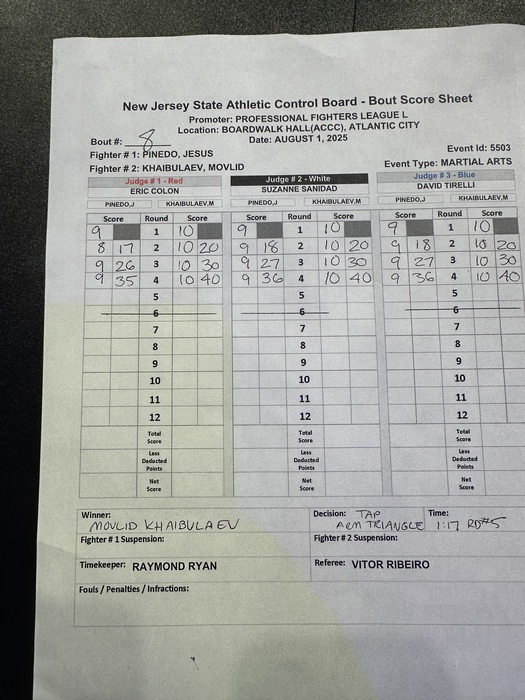 New Jersey State Athletic Control Board - Bout Score Sheet
Promoter: PROFESSIONAL FIGHTERS LEAGUE L
Location: BOARDWALK HALL(ACCC), ATLANTIC CITY
Bout #: 8 Date: AUGUST 1, 2025
Fighter # 1: PINEDO, JESUS Event Id: 5503
Fighter # 2: KHAIBULAEV, MOVLID Event Type: MARTIAL ARTS
Judge # 1 - Red Judge # 2 - White Judge # 3 - Blue
ERIC COLON SUZANNE SANIDAD DAVID TIRELLI
PINEDO,J KHAIBULAEV,M PINEDO,J KHAIBULAEV,M PINEDO,J KHAIBULAEV,M
Score Round Score Score Round Score Score Round Score
9 1 10 9 1 10 9 1 10
8 17 2 10 20 9 18 2 10 20 9 18 2 10 20
9 26 3 10 30 9 27 3 10 30 9 27 3 10 30
9 35 4 10 40 9 36 4 10 40 9 36 4 10 40
5 5 5
6 6 6
7 7 7
8 8 8
9 9 9
10 10 10
11 11 11
12 12 12
Total Total Total
Score Score Score
Less Less Less
Deducted Deducted Deducted
Points Points Points
Net Net Net
Score Score Score
Winner: Decision: TAP Time:
MOVLID KHAIBULAEV ARM TRIANGLE 1:17 RD#5
Fighter # 1 Suspension: Fighter # 2 Suspension:
Timekeeper: RAYMOND RYAN Referee: VITOR RIBEIRO
Fouls / Penalties / Infractions: